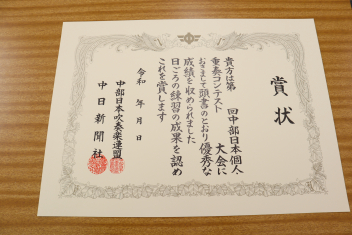 賞状
貴方は第　　回中部日本個人
重奏コンテスト　　　大会に
おきまして頭書のとおり優秀な
成績を収められました
日ごろの練習の成果を認め
これを賞します
令和　年　月　日
中部日本吹奏楽連盟
中日新聞社